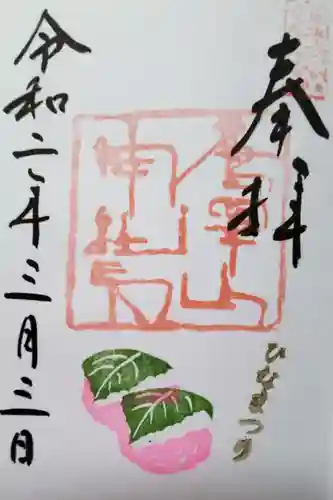 奉拝
ひなまつり
令和二年三月三日